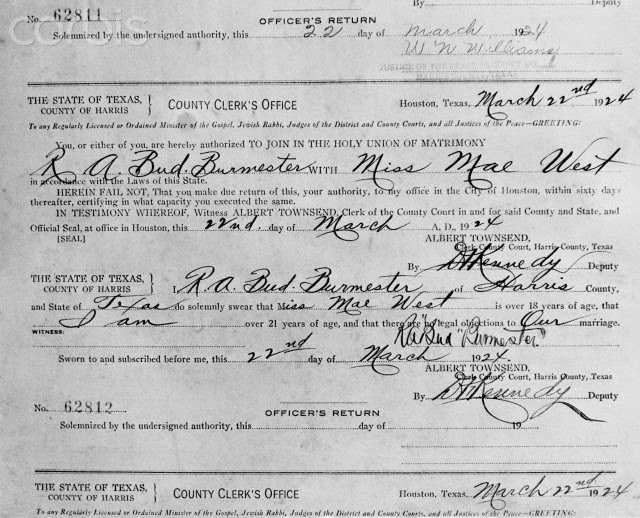 corbis
By Deputy
No. 62811
OFFICER'S RETURN
Solemnized by the undersigned authority, this 22 day of March 1924
W N Williams
THE STATE OF TEXAS,
COUNTY OF HARRIS
COUNTY CLERK'S OFFICE
Houston, Texas, March 22nd 1924
To any Regularly Licensed or Ordained Minister of the Gospel, Jewish Rabbi, Judges of the District and County Courts, and all Justices of the Peace—GREETING:
You, or either of you, are hereby authorized TO JOIN IN THE HOLY UNION OF MATRIMONY
R A. Bud. Burmester WITH Miss Mae West
in accordance with the Laws of this State.
HEREIN FAIL NOT, That you make due return of this, your authority, to my office in the City of Houston, within sixty days
thereafter, certifying in what capacity you executed the same.
IN TESTIMONY WHEREOF, Witness ALBERT TOWNSEND, Clerk of the County Court in and for said County and State, and
Official Seal, at office in Houston, this 22nd. day of March A. D. 1924
[SEAL]
ALBERT TOWNSEND,
Clerk County Court, Harris County, Texas
By Kennedy Deputy
THE STATE OF TEXAS,
COUNTY OF HARRIS
I, R.A. Bud. Burmester of Harris County,
and State of Texas do solemnly swear that Miss Mae West is over 18 years of age, that
I am over 21 years of age, and that there are no legal objections to Our marriage.
WITNESS:
RA "Bud" Burmester
Sworn to and subscribed before me, this 22nd day of March 1924
ALBERT TOWNSEND,
Clerk County Court, Harris County, Texas
By Kennedy Deputy
No. 62812
OFFICER'S RETURN
Solemnized by the undersigned authority, this day of 19
THE STATE OF TEXAS,
COUNTY OF HARRIS
COUNTY CLERK'S OFFICE
Houston, Texas, March 22nd 1924
To any Regularly Licensed or Ordained Minister of the Gospel, Jewish Rabbi, Judges of the District and County Courts, and all Justices of the Peace—GREETING: